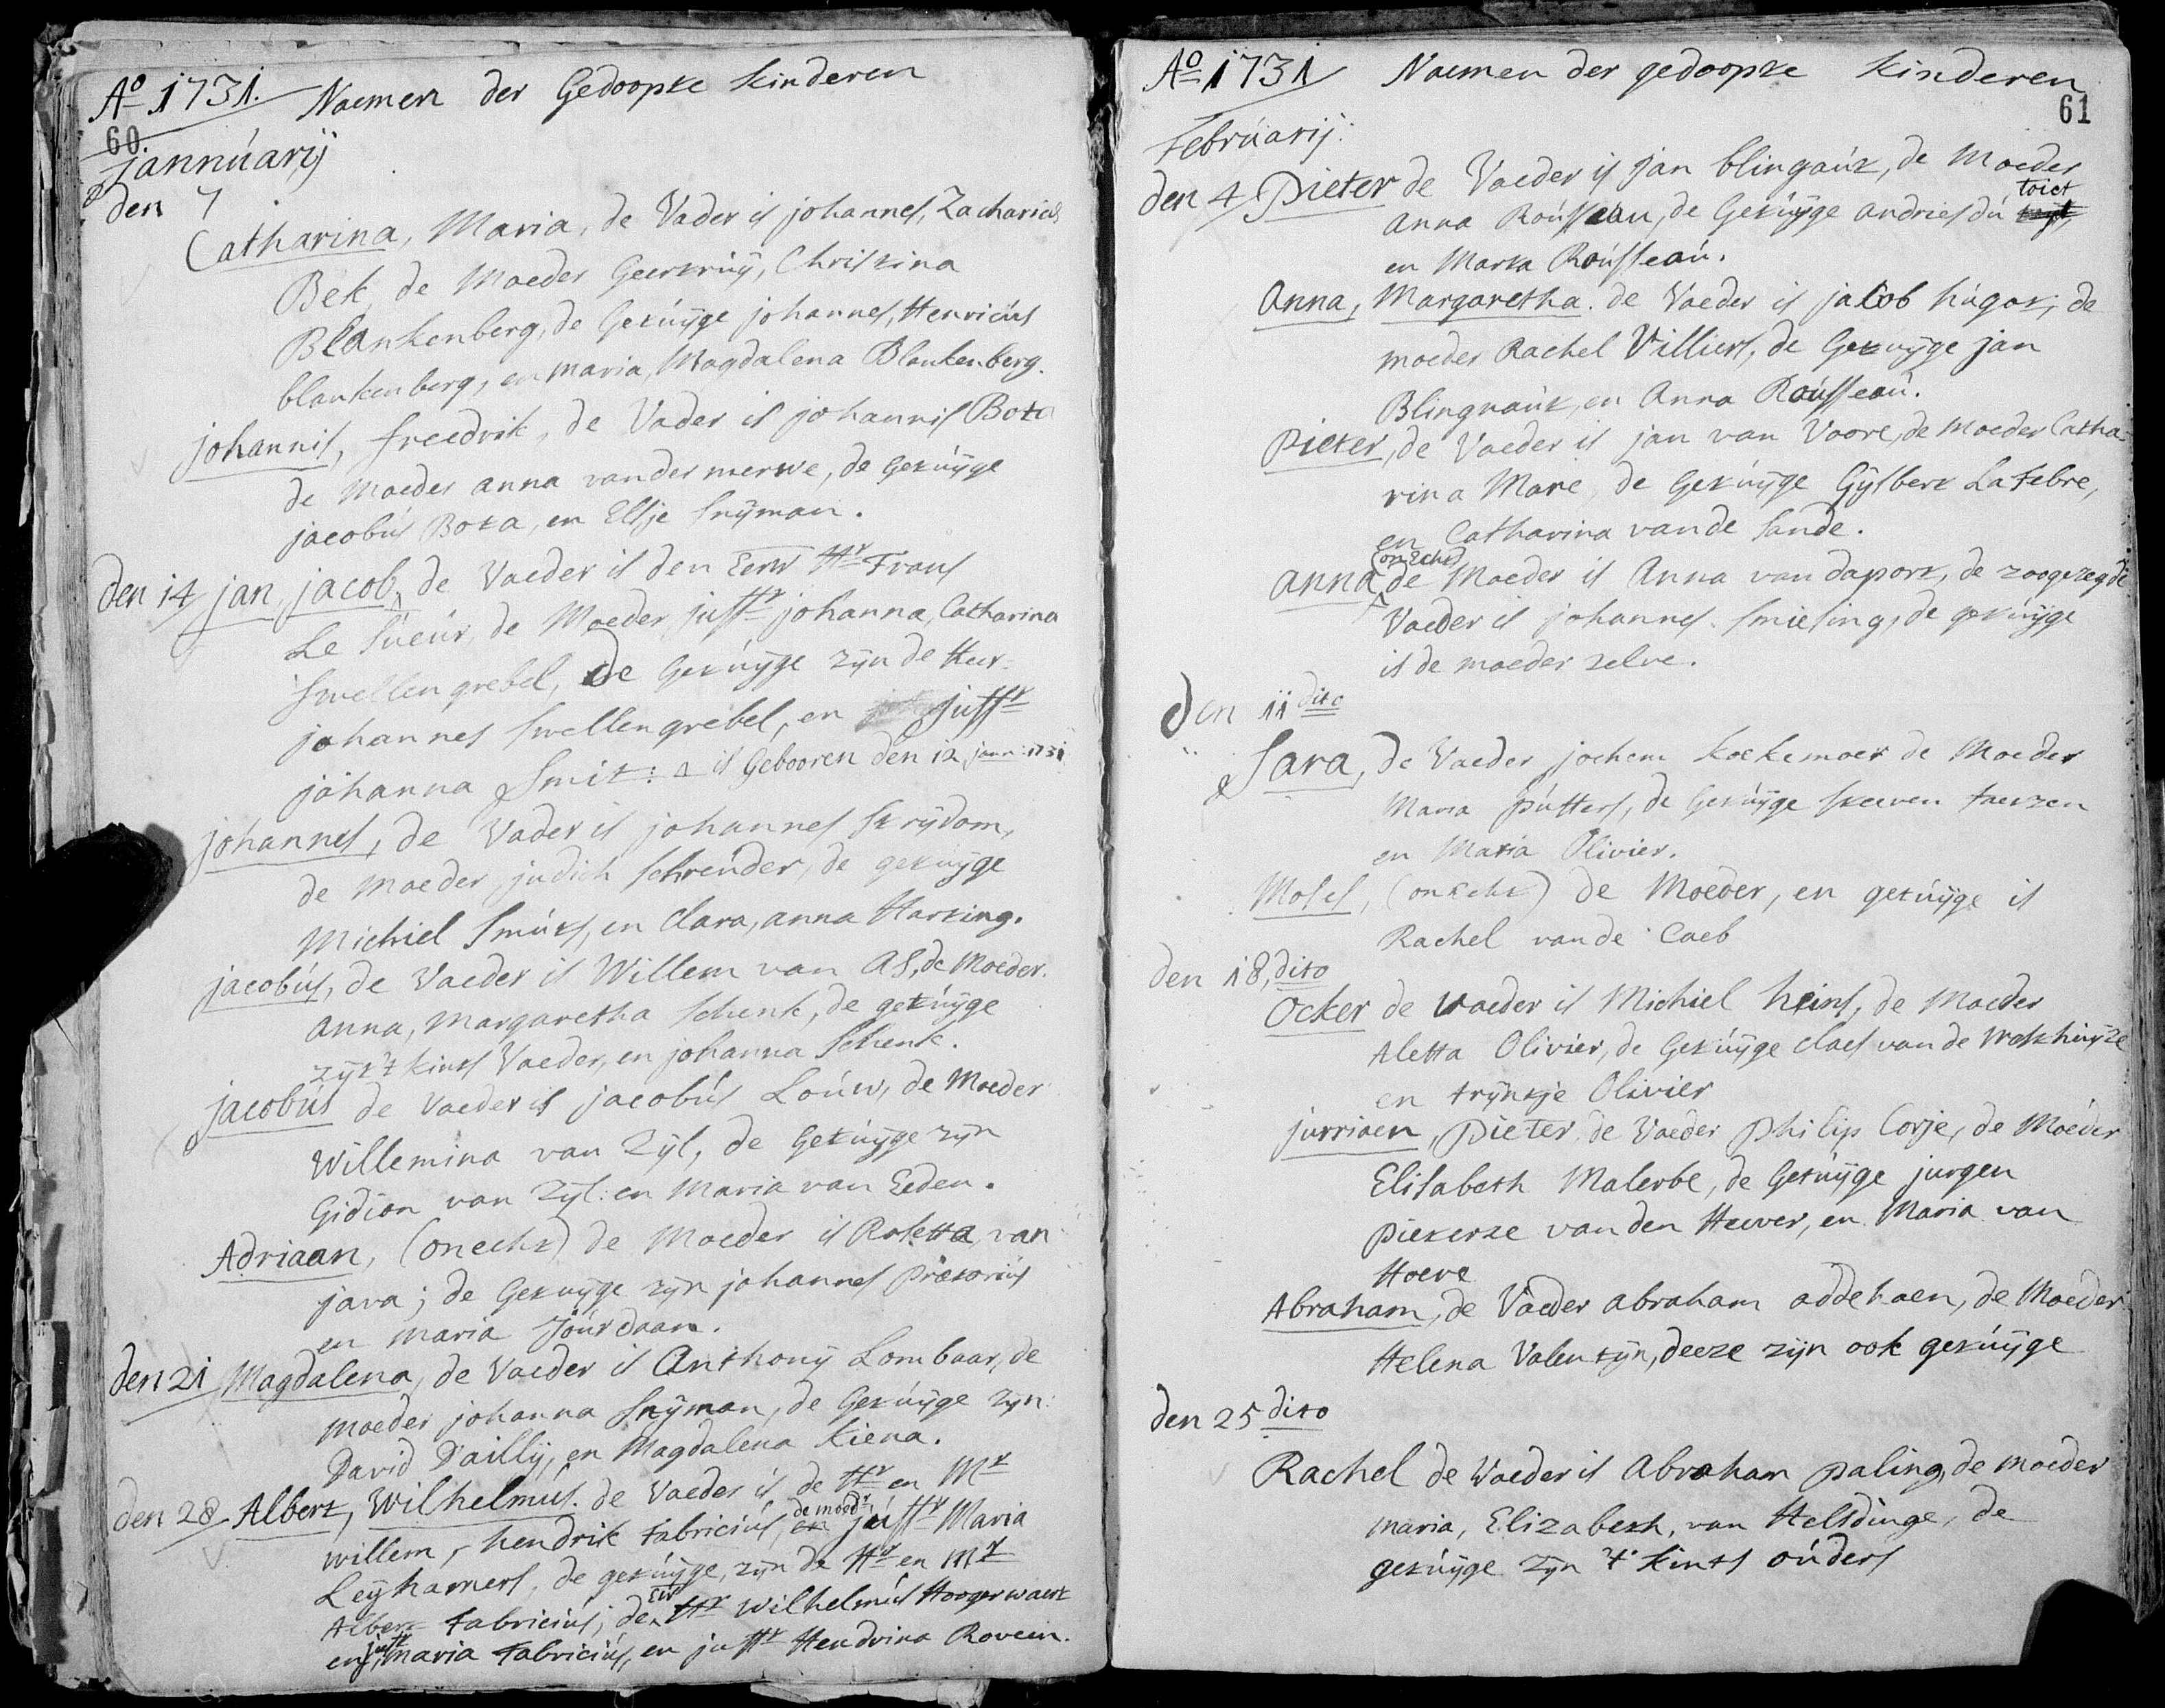 Aº 1731. Naemen der Gedoopte kinderen
60.
jannúarij
den 7
Catharina, Maria, de Vader is johannes, Zacharias
Bek, de Moeder Geertruij, Christina
Blankenberg, de Getúijge johannes, Henricús
blankenberg, en maria, Magdalena Blankenberg.
johannis, freedrik, de Vader is johannis Bota
de Moeder anna vander merwe, de Getúijge
jacobús Bota, en Elsje Snijman.
den 14 jan, jacob, de Vaeder is den Eerw Hr Frans
Le Súeúr, de Moeder juffr johanna, Catharina
Swellengrebel, de Getúijge zijn de Heer
johannes Swellengrebel, en juffr
johanna Smit: is Gebooren den 12 jann: 1731
johannes, de Vader is johannes Strijdom,
de Moeder, judich Schreuder, de getuijge
Michiel Smúts, en Clara, anna Harting.
jacobús, de Vaeder is Willem van AS, de Moeder
Anna, Margaretha Schenk, de getúijge
zijt 't kints Vaeder, en johanna Schenk.
jacobús de Vaeder is jacobús Loúw, de Moeder
Willemina van Zijl, de Getúijge zijn
Gidion van Zijl: en Maria van Eeden.
Adriaan, (onecht) de Moeder is Rosetta van
java; de Getuijge zijn johannes Prætoriús
en Maria Joúrdaan.
den 21 Magdalena, de Vaeder is Anthonij Lombaar, de
Moeder johanna Snijman, de Getúijge zijn:
David D'aillij, en Magdalena Kiena.
den 28 Albert, Wilhelmús. de Vaeder is de Hr en Mr
willem, hendrik Fabriciús, de moedr juffr Maria
Leijhamers, de getúijge, zijn de Hr en Mr
Albert Fabriciús, de Eer Hr Wilhelmús Hoogerwaert
en juffr maria Fabriciús, en juffr Hendrina Rovein.
Aº 1731 Naemen der gedoopte kinderen
61
Februarij:
den 4 Pieter de Vaeder is jan blingaút, de Moeder
Anna Roússeau, de Getúijge andries dú toict
en Marta Roússeaú.
Anna, Margaretha. de Vaeder is jacob húgot, de
moeder Rachel Villiers, de Getuijge jan
Blingnaút, en Anna Roússeaú.
Pieter, de Vaeder is jan van Voore, de Moeder Catha-
rina Mare, de Getúijge Gijsbert La Febre,
en Catharina vande Sande.
anna (onecht) de Moeder is Anna van dapoer, de zoogezegde
Vaeder is johannes Smiesing, de getúijge
is de moeder zelve.
den 11 dito
Sara, de Vaeder jochem Koekemoer de Moeder
Maria pútters, de Getúijge Steeven
en Maria Olivier.
Moses, (onecht) de Moeder, en getúijge is
Rachel vande Caeb
den 18, dito
Ocker de Vaeder is Michiel heins, de Moeder
Aletta Olivier, de Getúijge Claes van de Westhuijze
en trijntje Olivier
jurriaen, Pieter, de Vaeder Philip Corje, de Moeder
Elisabeth Malerbe, de Getuijge jurgen
pieterze van den Heever, en Maria van
Hoeve
Abraham, de Vaeder abraham addehaen, de Moeder
Helena Valentijn, deeze zijn ook getúijge
den 25 dito
Rachel de Vaeder is Abraham paling, de moeder
maria, Elizabeth, van Helsdinge, de
getúijge zijn 't kints oúders